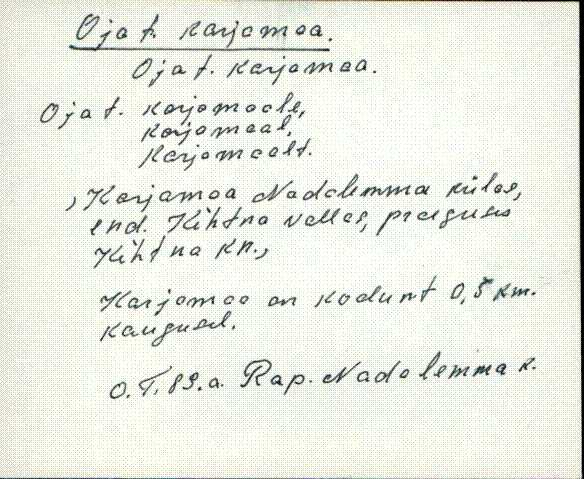 Oja t. karjamaa.
Oja t. karjamaa.
Oja t. karjamaale,
karjamaal,
karjamaalt.
, Karjamaa Nadalemma külas,
end. Kihtna vallas, praeguses
Kihtna kn.,
Karjamaa on kodunt 0,5 km.
kaugusel.
O. T. 89. a. Rap. Nadalemma k.